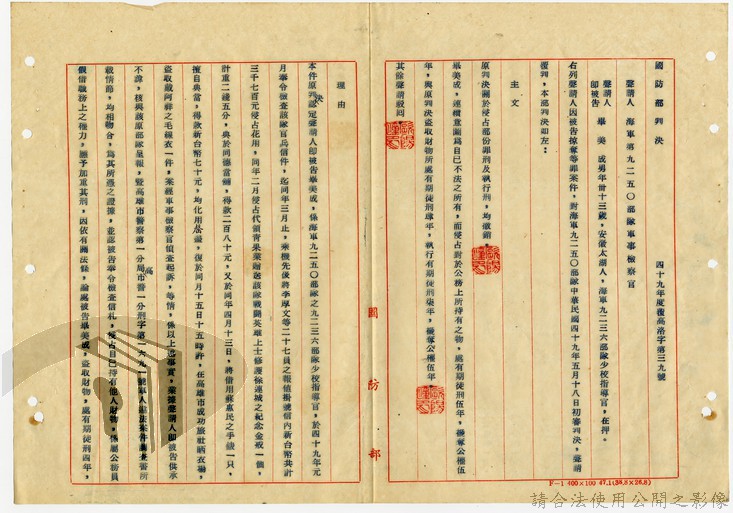 國防部判決
四十九年度覆高洛字第三九號
聲請人 海軍第九二五〇部隊軍事檢察官
聲請人
即被告 畢美成 男年卅十三歲，安徽太湖人，海軍九二三六部隊少校指導官，在押。
右列聲請人因被告掠奪等罪案件，對海軍九二五〇部隊中華民國四十九年五月十八日初審判決，聲請
覆判，本部判決如左：
主文
原判決關於侵占部份罪刑及執行刑，均撤銷。
畢美成，連續意圖為自己不法之所有，而侵占對於公務上所持有之物，處有期徒刑伍年，褫奪公權伍
年，與原判決盜取財物所處有期徒刑肆年，執行有期徒刑柒年，褫奪公權伍年。
其餘聲請駁回。
理由
本件原判決認定聲請人即被告畢美成，係海軍九二五〇部隊之九二三六部隊少校指導官，於四十九年元
月奉令檢查該隊官兵信件，迄同年三月止，乘機先後將李厚文等二十七員之報值掛號信內新台幣共計
三千七百元侵占花用，同年二月侵占代領青果業贈送該隊戰鬥英雄上士修護徐連城之紀念金戒一個，
計重二錢五分，典於同德當舖，得款二百八十元，又於同年四月十三日，將借用蘇惠民之手錶一只，
擅自典當，得款新台幣七十元，均化用，復於同月十五日十五時許，在高雄市成功旅社晒衣場，
盜取戴阿祥之毛線衣一件，案經軍事檢察官偵查起訴，等情，係以上述事實，業據聲請人即被告供承
不諱，核與該原部隊呈報，暨高雄市警察第一分局高市警一分刑字第一六九一號軍人違法案件調查書所
載情節，均相吻合，為其所憑之證據，並認被告奉令檢查信札，侵占自己持有他人財物，係屬公務員
假借職務上之權力，應予加重其刑，因依有關法條，論處被告畢美成，盜取財物，處有期徒刑四年，
國防部
F-1 400×100 47.1(38.8×26.8)
請合法使用公開之影像